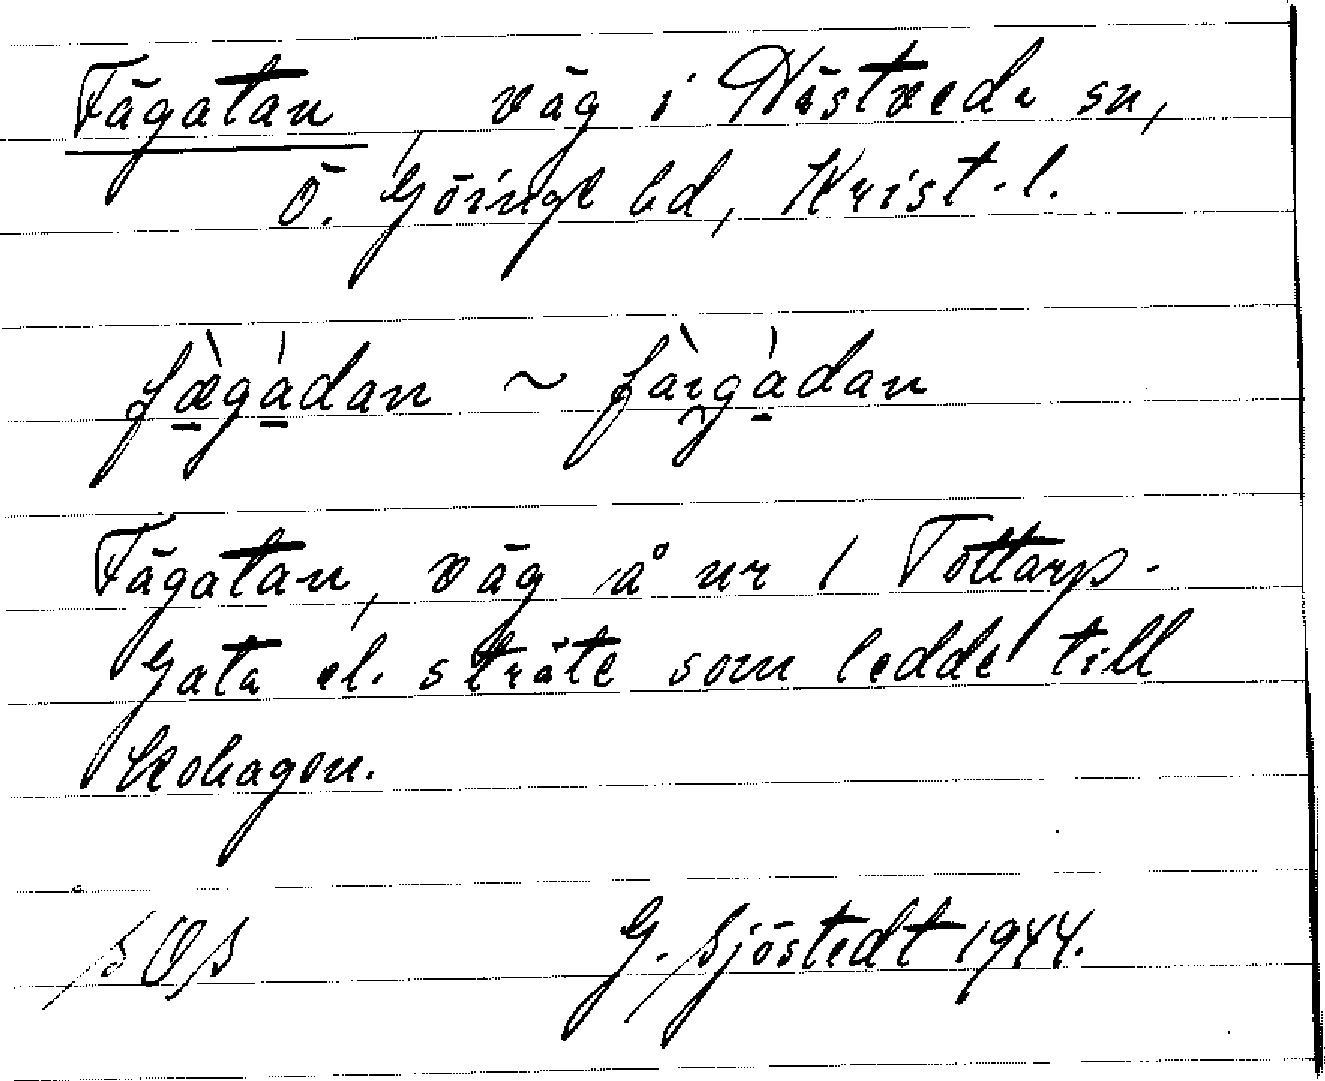 Fägatan, väg i Hästveda sn,
Ö. Göinge hd, Krist. l.
fæ̀gádan ~ fàigádan
Fägatan, väg å nr 1 Tottarp.
Gata el. sträte som ledde till
kohagen.
SOS G. Sjöstedt 1944.